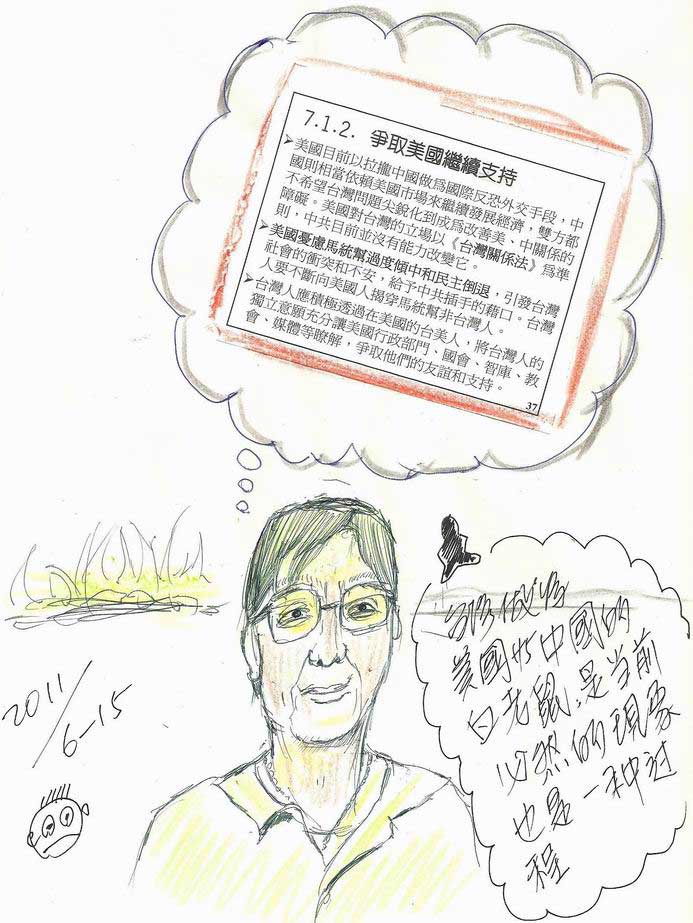 7.1.2. 爭取美國繼續支持
➤美國目前以拉攏中國做為國際反恐外交手段，中
國則相當依賴美國市場來繼續發展經濟，雙方都
不希望台灣問題尖銳化到成為改善美、中關係的
障礙。美國對台灣的立場以《台灣關係法》為準
則，中共目前並沒有能力改變它。
➤美國憂慮馬統幫過度傾中和民主倒退，引發台灣
社會的衝突和不安，給予中共插手的藉口。台灣
人要不斷向美國人揭穿馬統幫非台灣人。
➤台灣人應積極透過在美國的台美人，將台灣人的
獨立意願充分讓美國行政部門、國會、智庫、教
會、媒體等瞭解，爭取他們的友誼和支持。
37
做為
美國与中國的
白老鼠，是当前
必然的現象
也是一种过
程
2011/
6-15